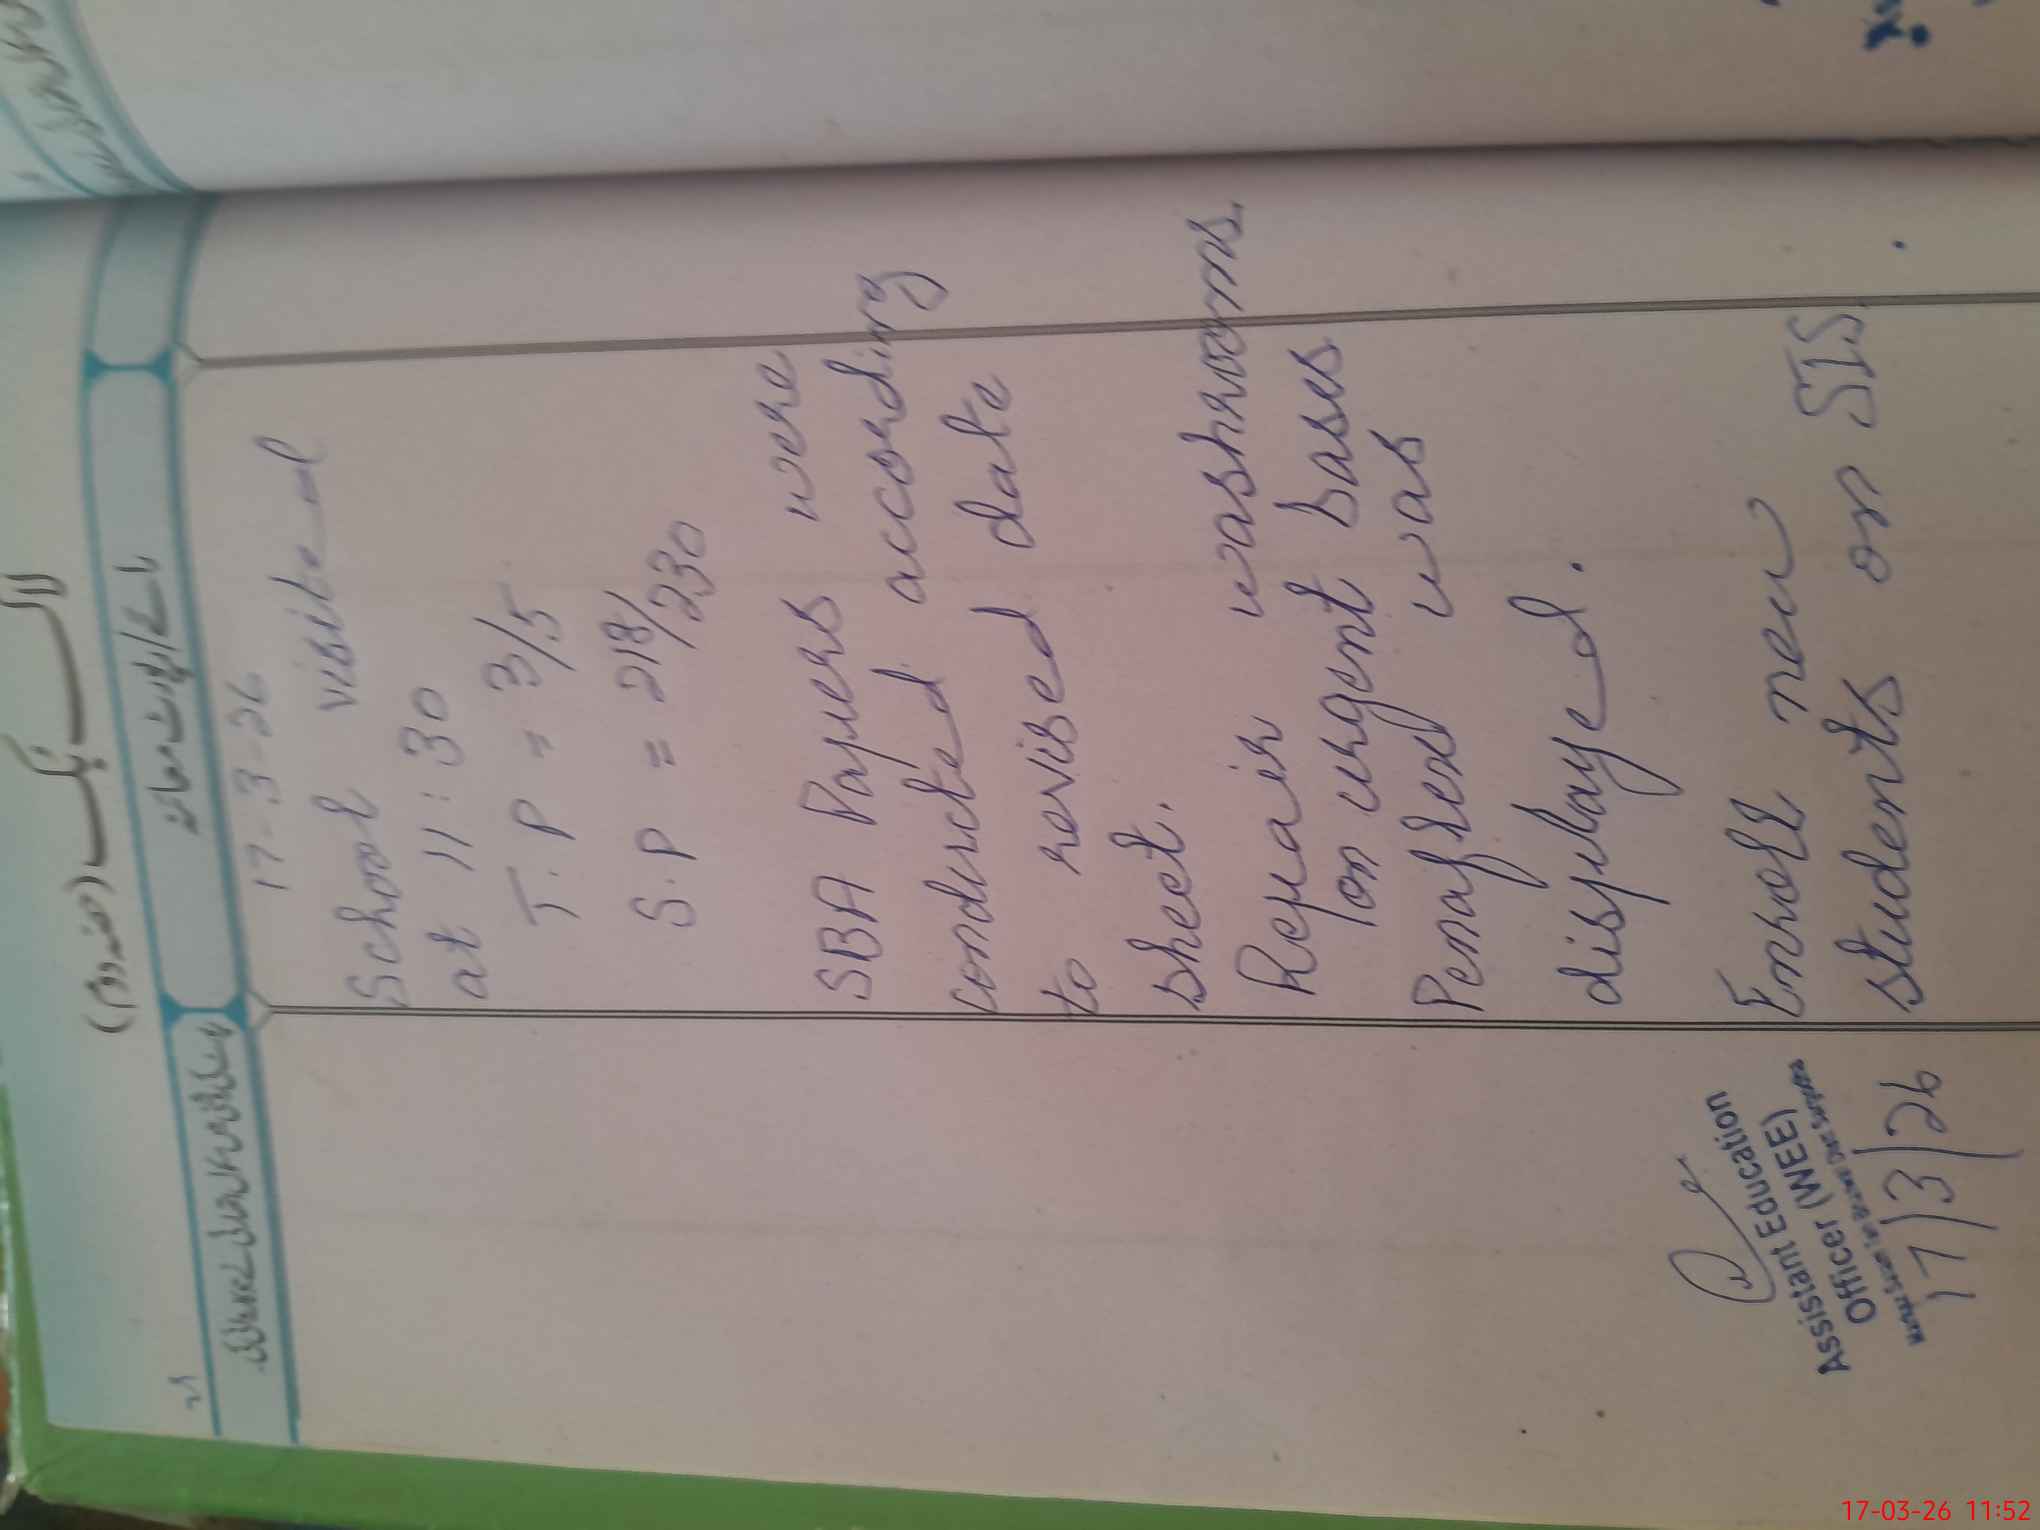 لاگ بک (حصہ دوم)
رائے / ہدایات معائنہ
17-3-26
School visited
at 11:30
T.P = 3/5
S.P = 218/230
SBA Papers were
conducted according
to revised date
sheet.
Repair washrooms.
on urgent bases
Penaflex was
displayed.
Enroll new
students on SIS.
Assistant Education
Officer (WEE)
17/3/26
17-03-26 11:52